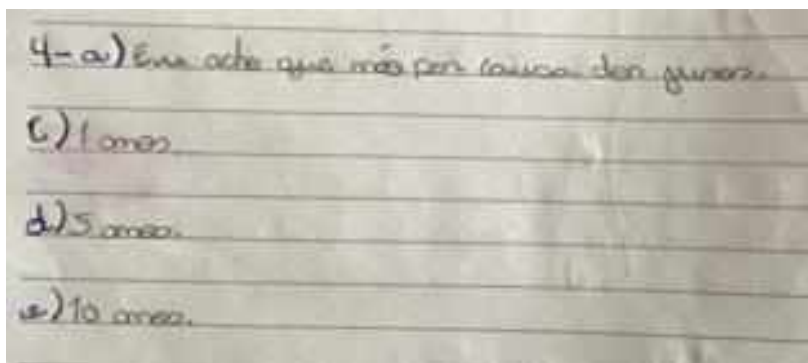 4-a) Eu acho que não por causa dos juros.
c) 1 anos
d) 5 anos.
e) 10 anos.